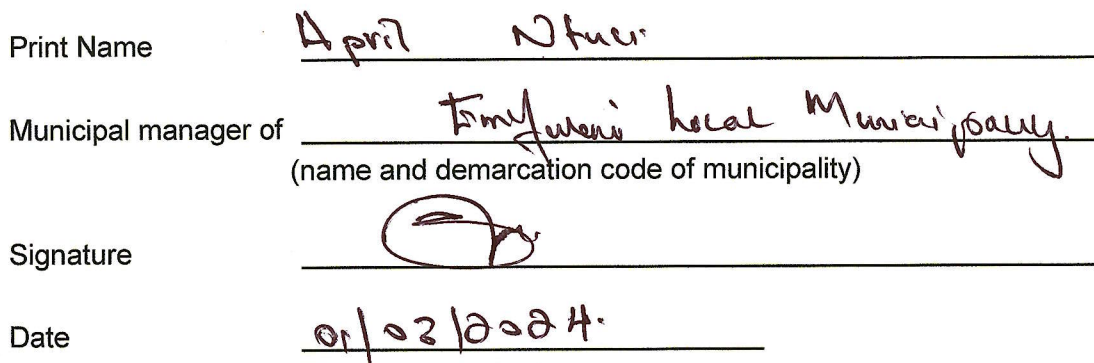 Print Name April Ntuli
Municipal manager of Local Municipality.
(name and demarcation code of municipality)
Signature
Date 01/03/2024.